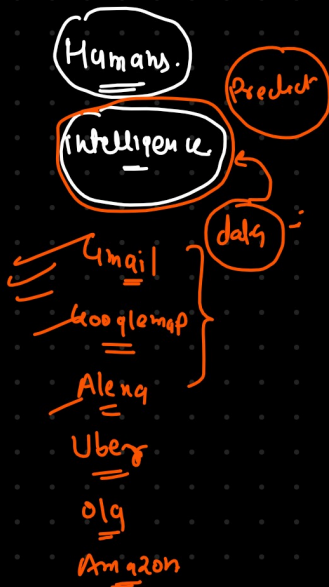 Humans.
Predict
intelligence
data
Gmail
Googlemap
Alexa
Uber
Ola
Amazon